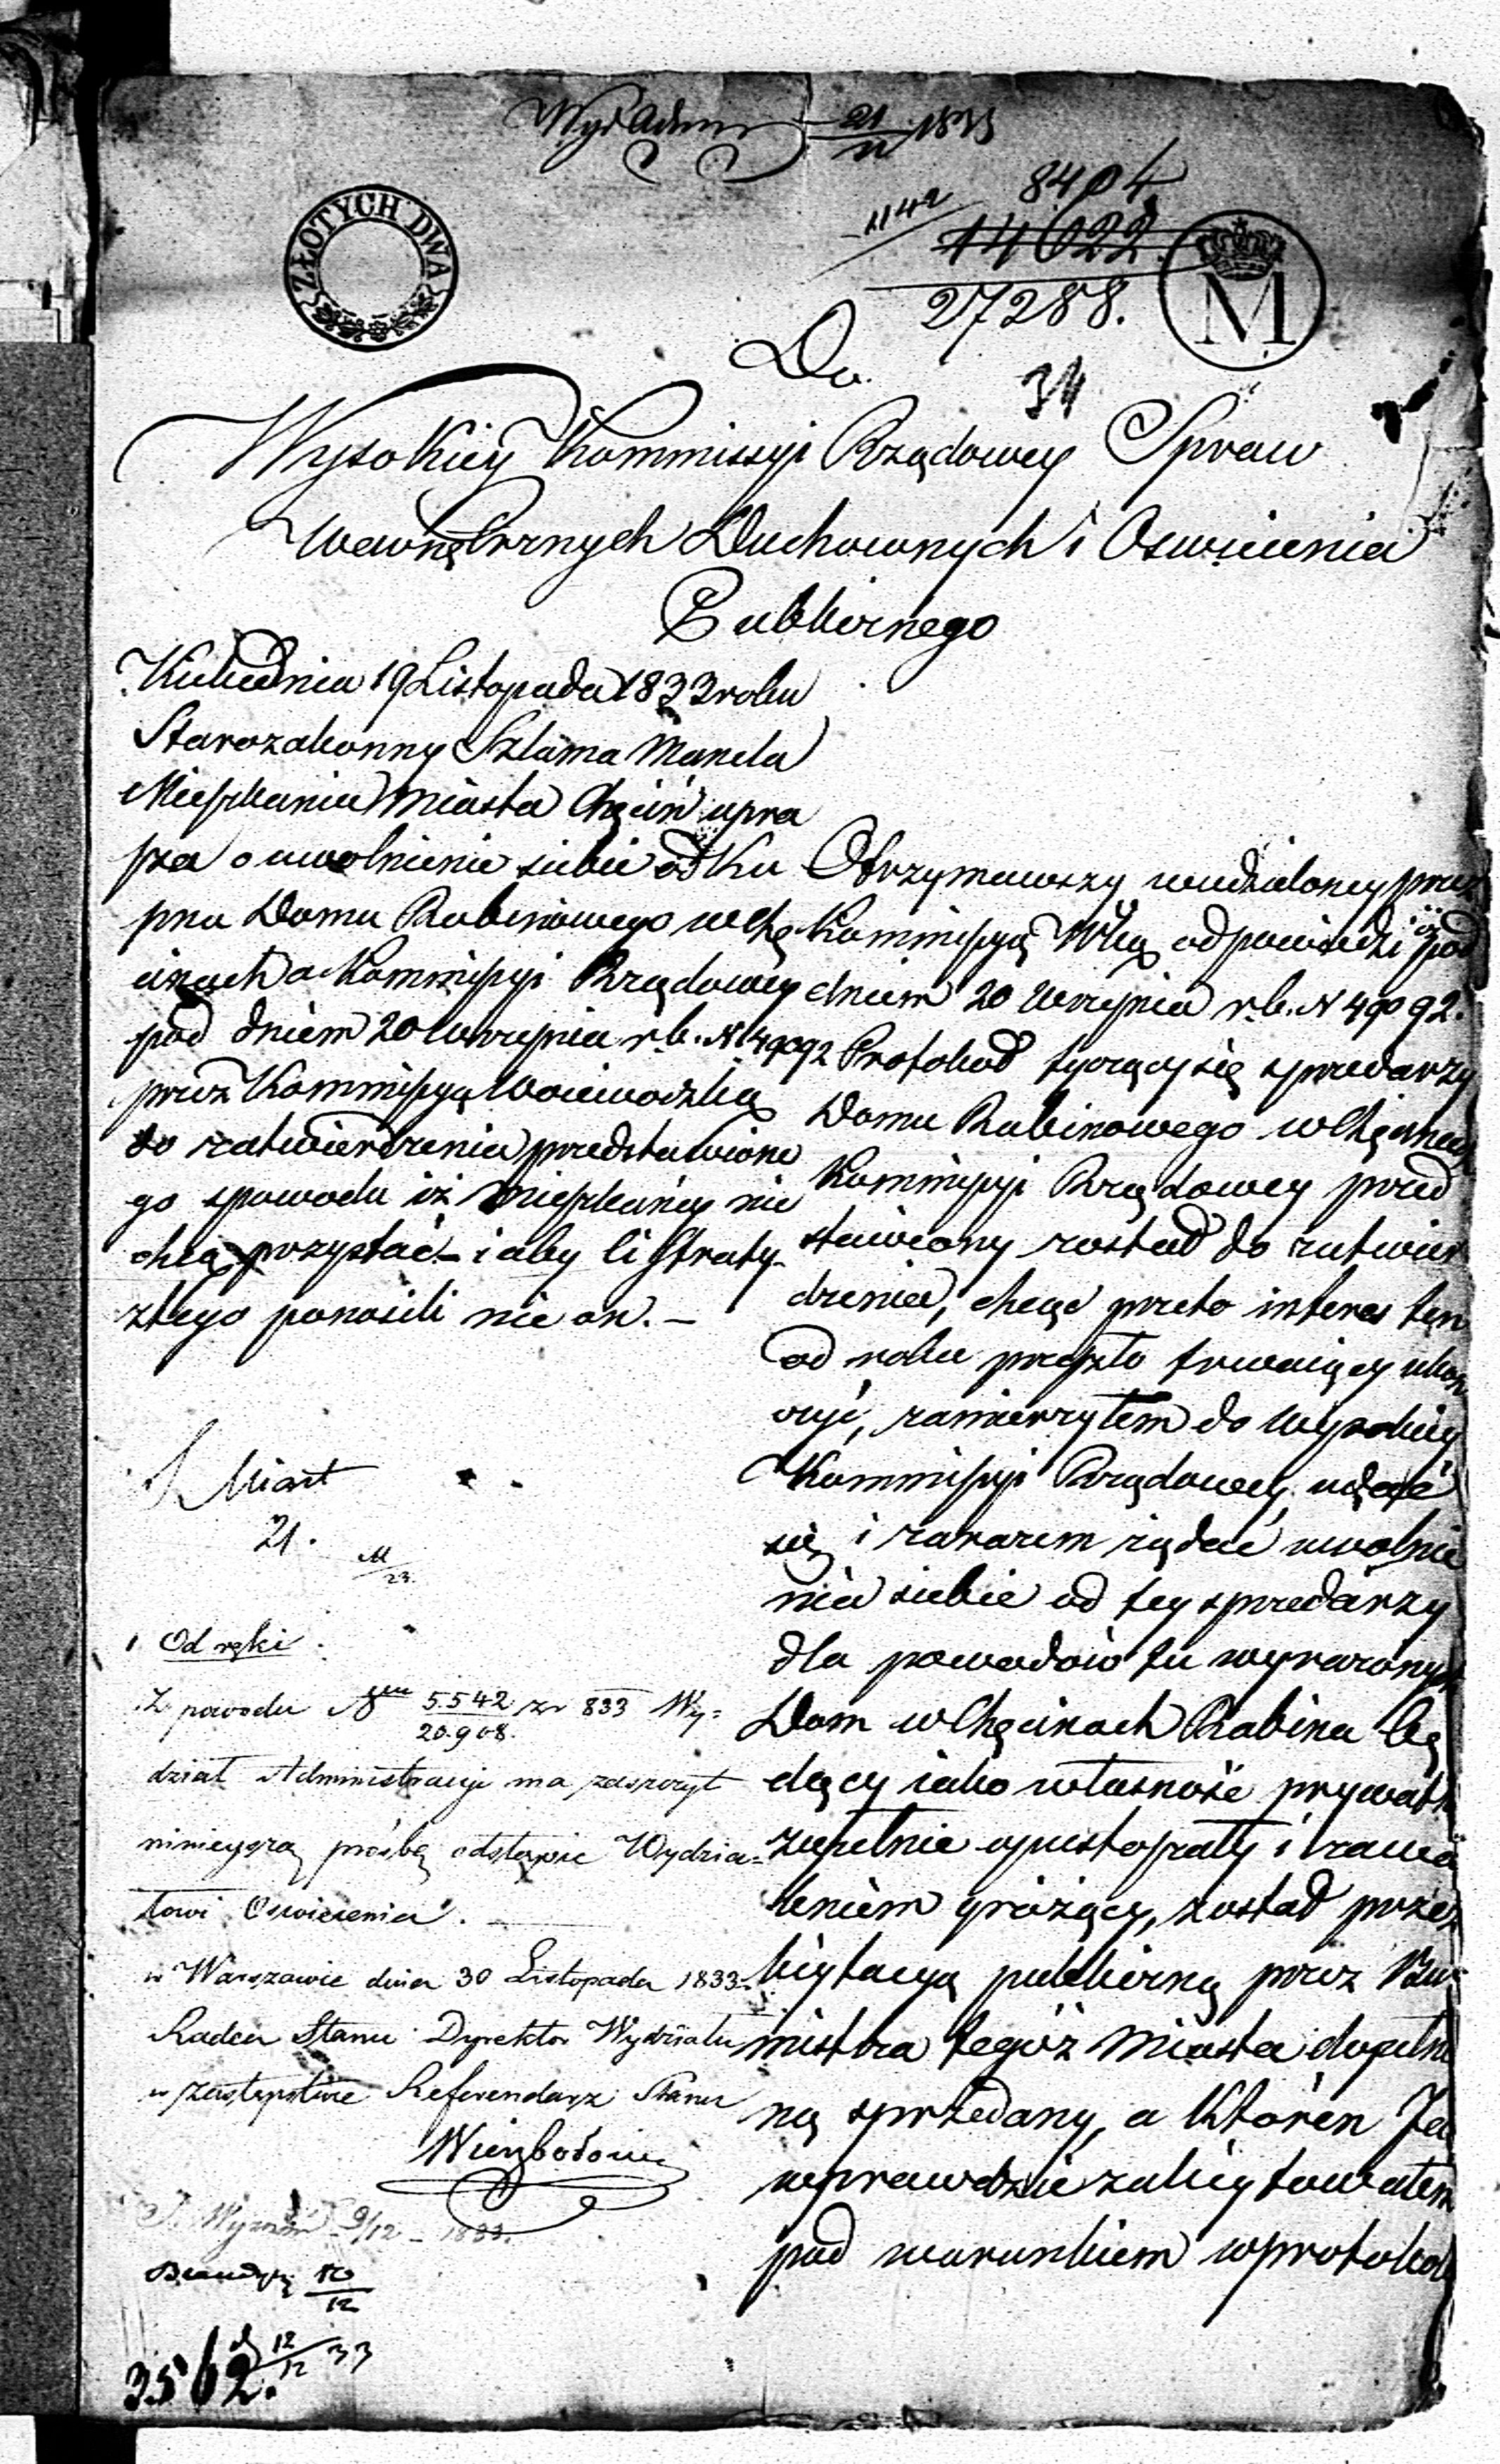 Wyd Admin 21/11 1833
ZŁOTYCH DWA
1142 8404
14622
27288.
M
Do
34
Wysokiey Kommissyi Rządowey Spraw
Wewnętrznych Duchownych i Oswiecenia
Publicznego
dnia 19 Listopada 1833 roku
Starozakonny Szlama Manela
Mieszkaniec miasta Chęcin upra
sza o uwolnienie siebie od Ku
pna Domu Rabinowego w Chę
cinach a Kommissyi Rządowey
pod dniem 20 Wrzesnia r.b. N 49092
przez Kommissyą Woiewodzką
do zatwierdzenia przedstawione
go z powodu iż mieszkańcy nie
chcą przystać – i aby li straty
ztego ponosili nie on. –
Otrzymawszy w udzieloney przez
Kommissyą Wką odpowiedzi iż pod
dniem 20 Wrzesnia r.b. N 49092.
Protokoł tyczący się sprzedarzy
Domu Rabinowego w Chęcinach
Kommissyi Rządowey przed
stawiony został do zatwier
dzenia, chcąc przeto interes ten
od roku przeszło trwaiący ukoń
czyć, zamierzyłem do Wysokiey
Kommissyi Rządowey udać
się i zarazem żądać uwolnie
nia siebie od tey sprzedarzy
dla powodów tu wyrażonych
Dom w Chęcinach Rabina bę
dący iako własność prywatna
zupełnie opustoszały i zawa
leniem grożący, został przez
licytacyą publiczną przez Bur
mistrza tegoż Miasta dopełnio
ną sprzedany, a Któren Ja
wprawdzie zalicytowałem
pod warunkiem w protokole
S Miast
21.
M/23.
Od ręki
Z powodu Nru 5.542/20.908. zr 833 Wy=
dział Administracyi ma zaszczyt
ninieyszą prośbę odstąpić Wydzia=
łowi Oswiecenia.
w Warszawie dnia 30 Listopada 1833
Radca Stanu Dyrektor Wydziału
w zastępstwie Referendarz Stanu
Wierzbołowicz
9/12 – 1833.
10/12
12/12 33
3562.